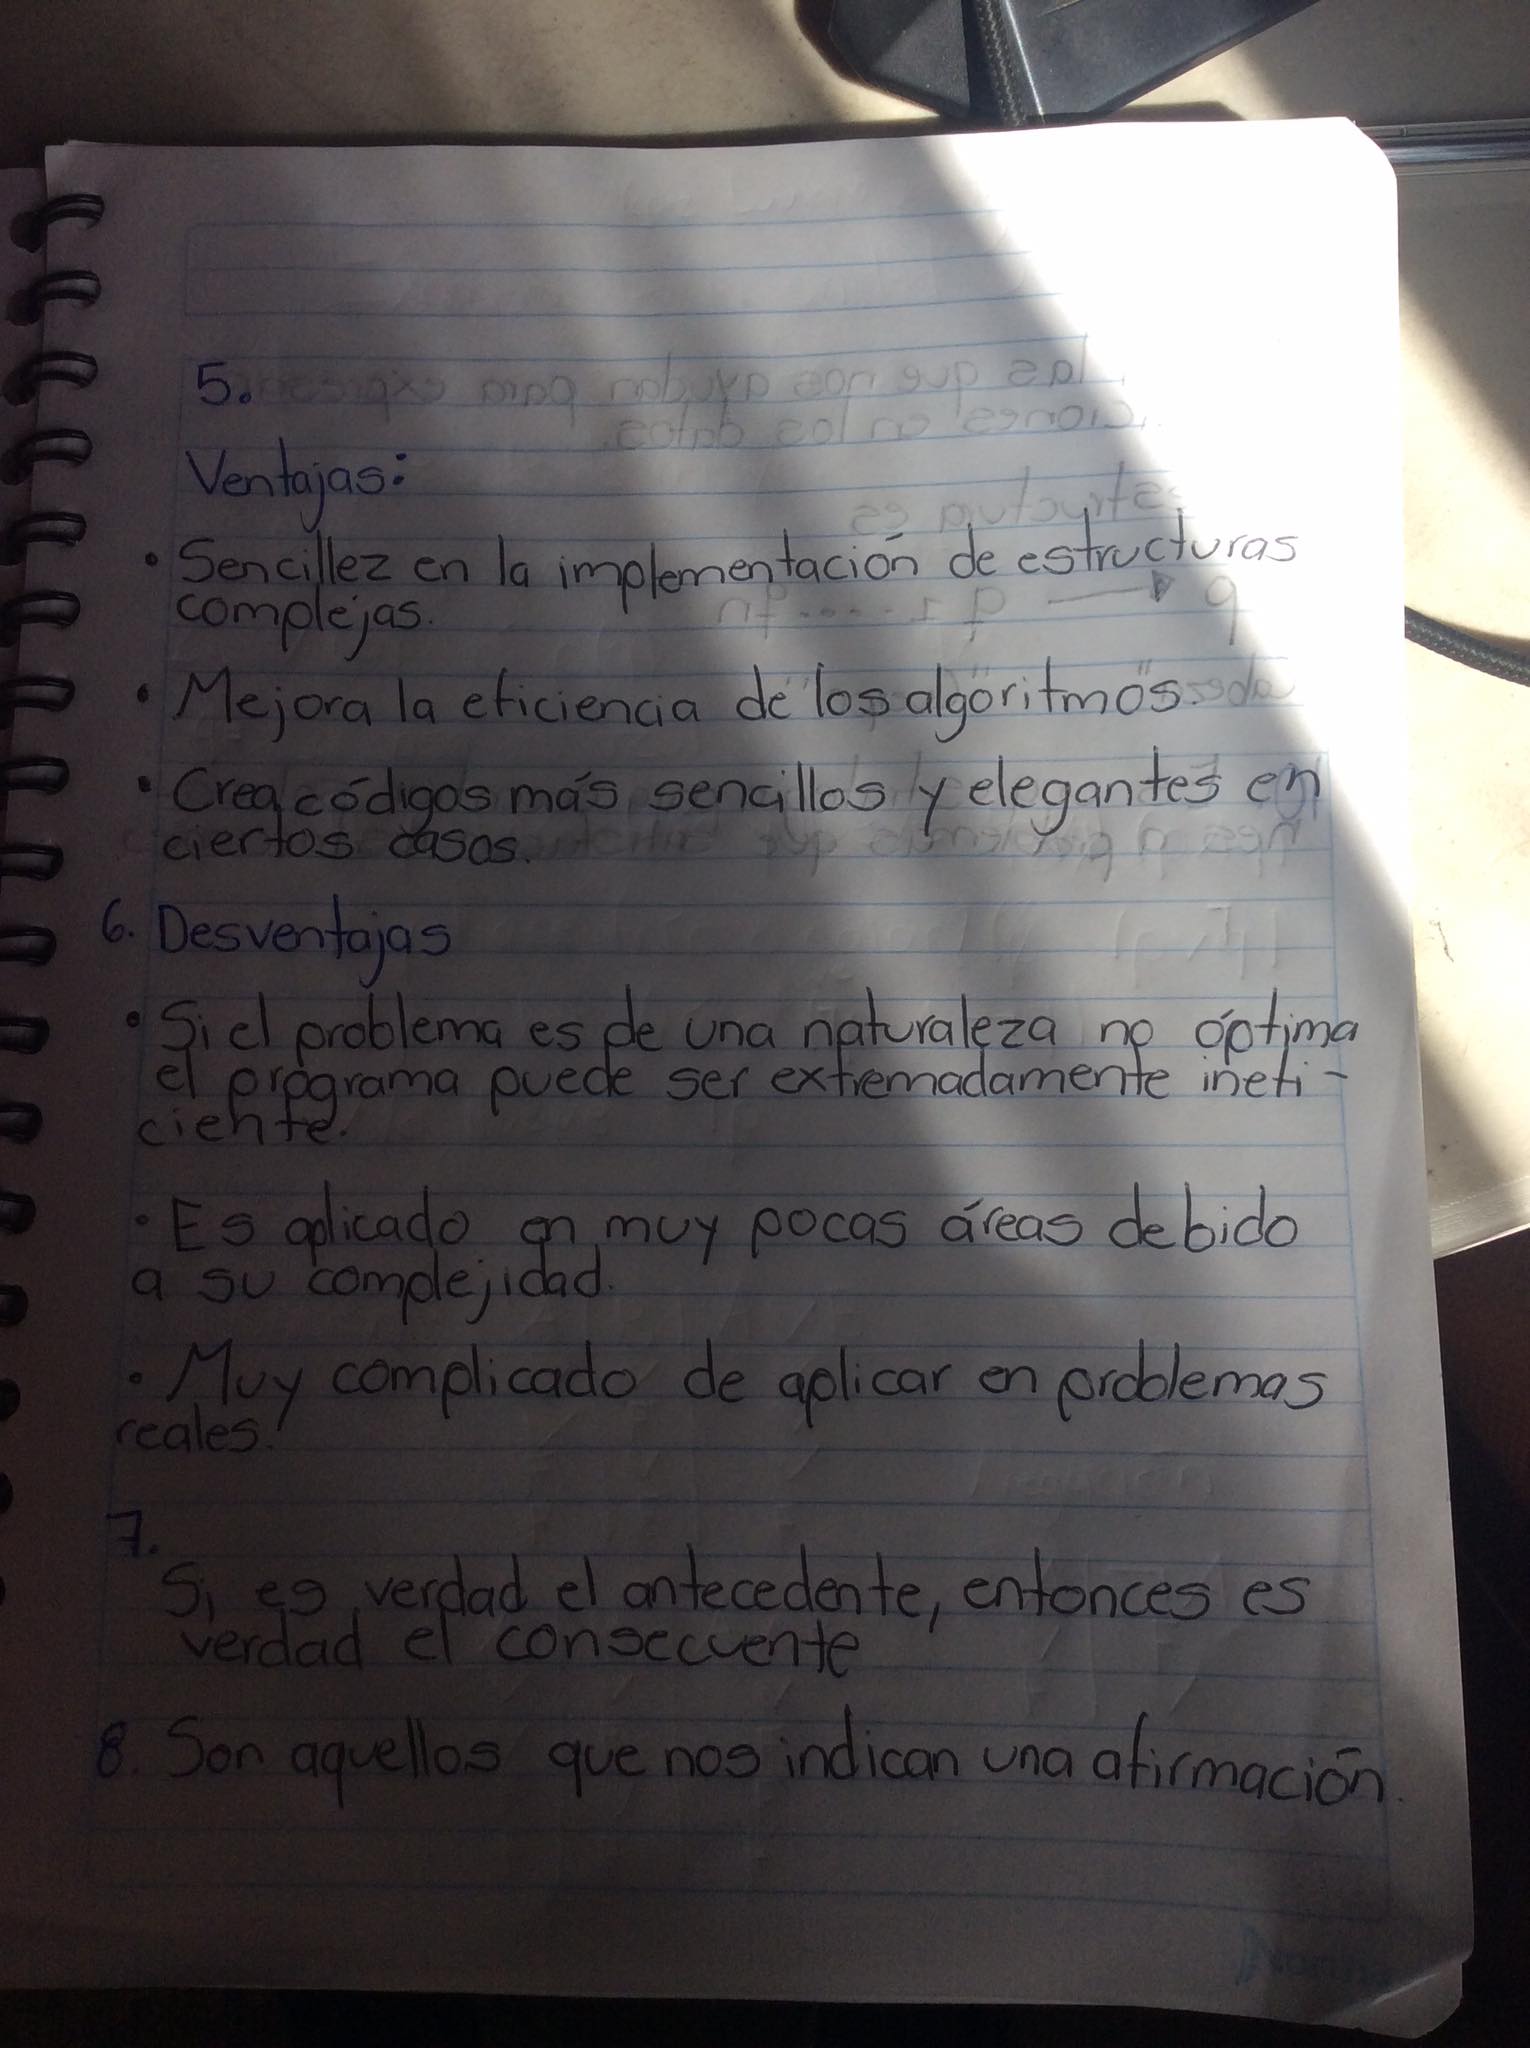 5.
Ventajas:
• Sencillez en la implementación de estructuras
complejas.
• Mejora la eficiencia de los algoritmos.
• Crea códigos más sencillos y elegantes en
ciertos casos.
6. Desventajas
• Si el problema es de una naturaleza no óptima
el programa puede ser extremadamente inefi-
ciente.
• Es aplicado en muy pocas áreas debido
a su complejidad.
• Muy complicado de aplicar en problemas
reales.
7.
Si es verdad el antecedente, entonces es
verdad el consecuente
8. Son aquellos que nos indican una afirmación.